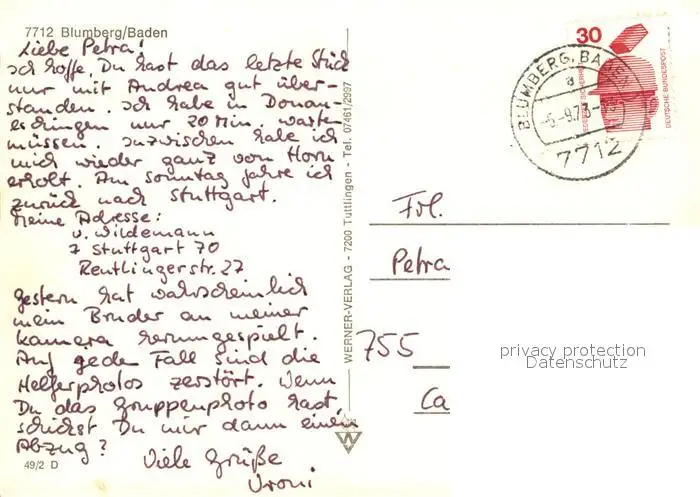 7712 Blumberg/Baden
Liebe Petra!
Ich hoffe, Du hast das letzte Stück
nur mit Andrea gut über-
standen. Ich habe in Donau-
eschingen nur 20 Min. warten
müssen. Inzwischen habe ich
mich wieder ganz vom Horn
erholt. Am Sonntag fahre ich
zurück nach Stuttgart.
Meine Adresse:
v. Wildemann
7 Stuttgart 70
Reutlingerstr. 27
Gestern hat wahrscheinlich
mein Bruder an meiner
Kamera herumgespielt.
Auf jeden Fall sind die
Helferphotos zerstört. Wenn
Du das Gruppenphoto hast,
schickst Du mir dann einen
Abzug?
Viele Grüße
Vroni
49/2 D
WERNER-VERLAG - 7200 Tuttlingen - Tel. 07461/2997
W
30
DEUTSCHE BUNDESPOST
BLUMBERG, BADEN
a
-6.-9.73-
7712
Frl.
Petra
755
Ca
privacy protection
Datenschutz